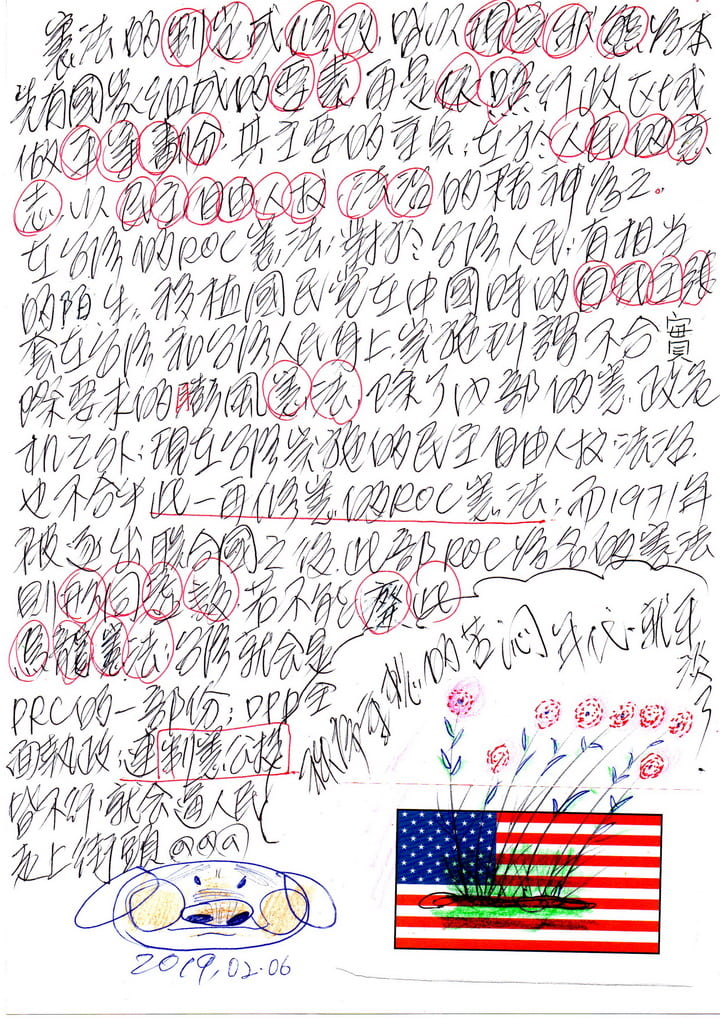 憲法的制定或修改,皆以現實狀態為本
先有國家組成的要素,再是依照行政区域
做平等劃分,其主要的重点,在於人民的意
志,以民主自由人权法治的精神為之。
在台湾的ROC憲法,對於台湾人民,有相当
的陌生,移植國民党在中國時的自我主張
套在台湾和台湾人民身上,实施到謂不合實
際要求的膨風憲法,除了內部的憲政危
机之外,現在台湾实施的民主自由人权法治,
也不合乎此一再修憲的ROC憲法;而1971年
被逐出联合國之後,此部ROC為名的憲法
則形同虛設,若不能廢此
舊憲法,台湾就会是
PRC的一部份;DPP全
面執政,連制憲公投
皆不行,就会逼人民
走上街頭@@@
的苦悶年代,就再次
2019.02.06